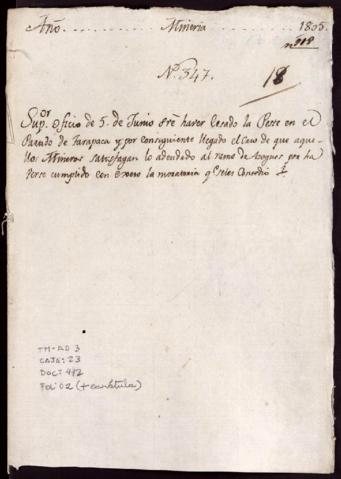 Año. Mineria 1805.
n 518
Nº 347. 18
Sup.or Oficio de 5. de Junio sre haver Cesado la Peste en el
Partido de Tarapaca y por consiguiente llegado el Caso de que aque-
llos Mineros satisfagan lo adeudado al ramo de Azogues por ha
verse cumplido con exceso la moratoria q
TM-AD 3
CAJA: 23
DOC: 472
Fol: 02 (+ carátula)